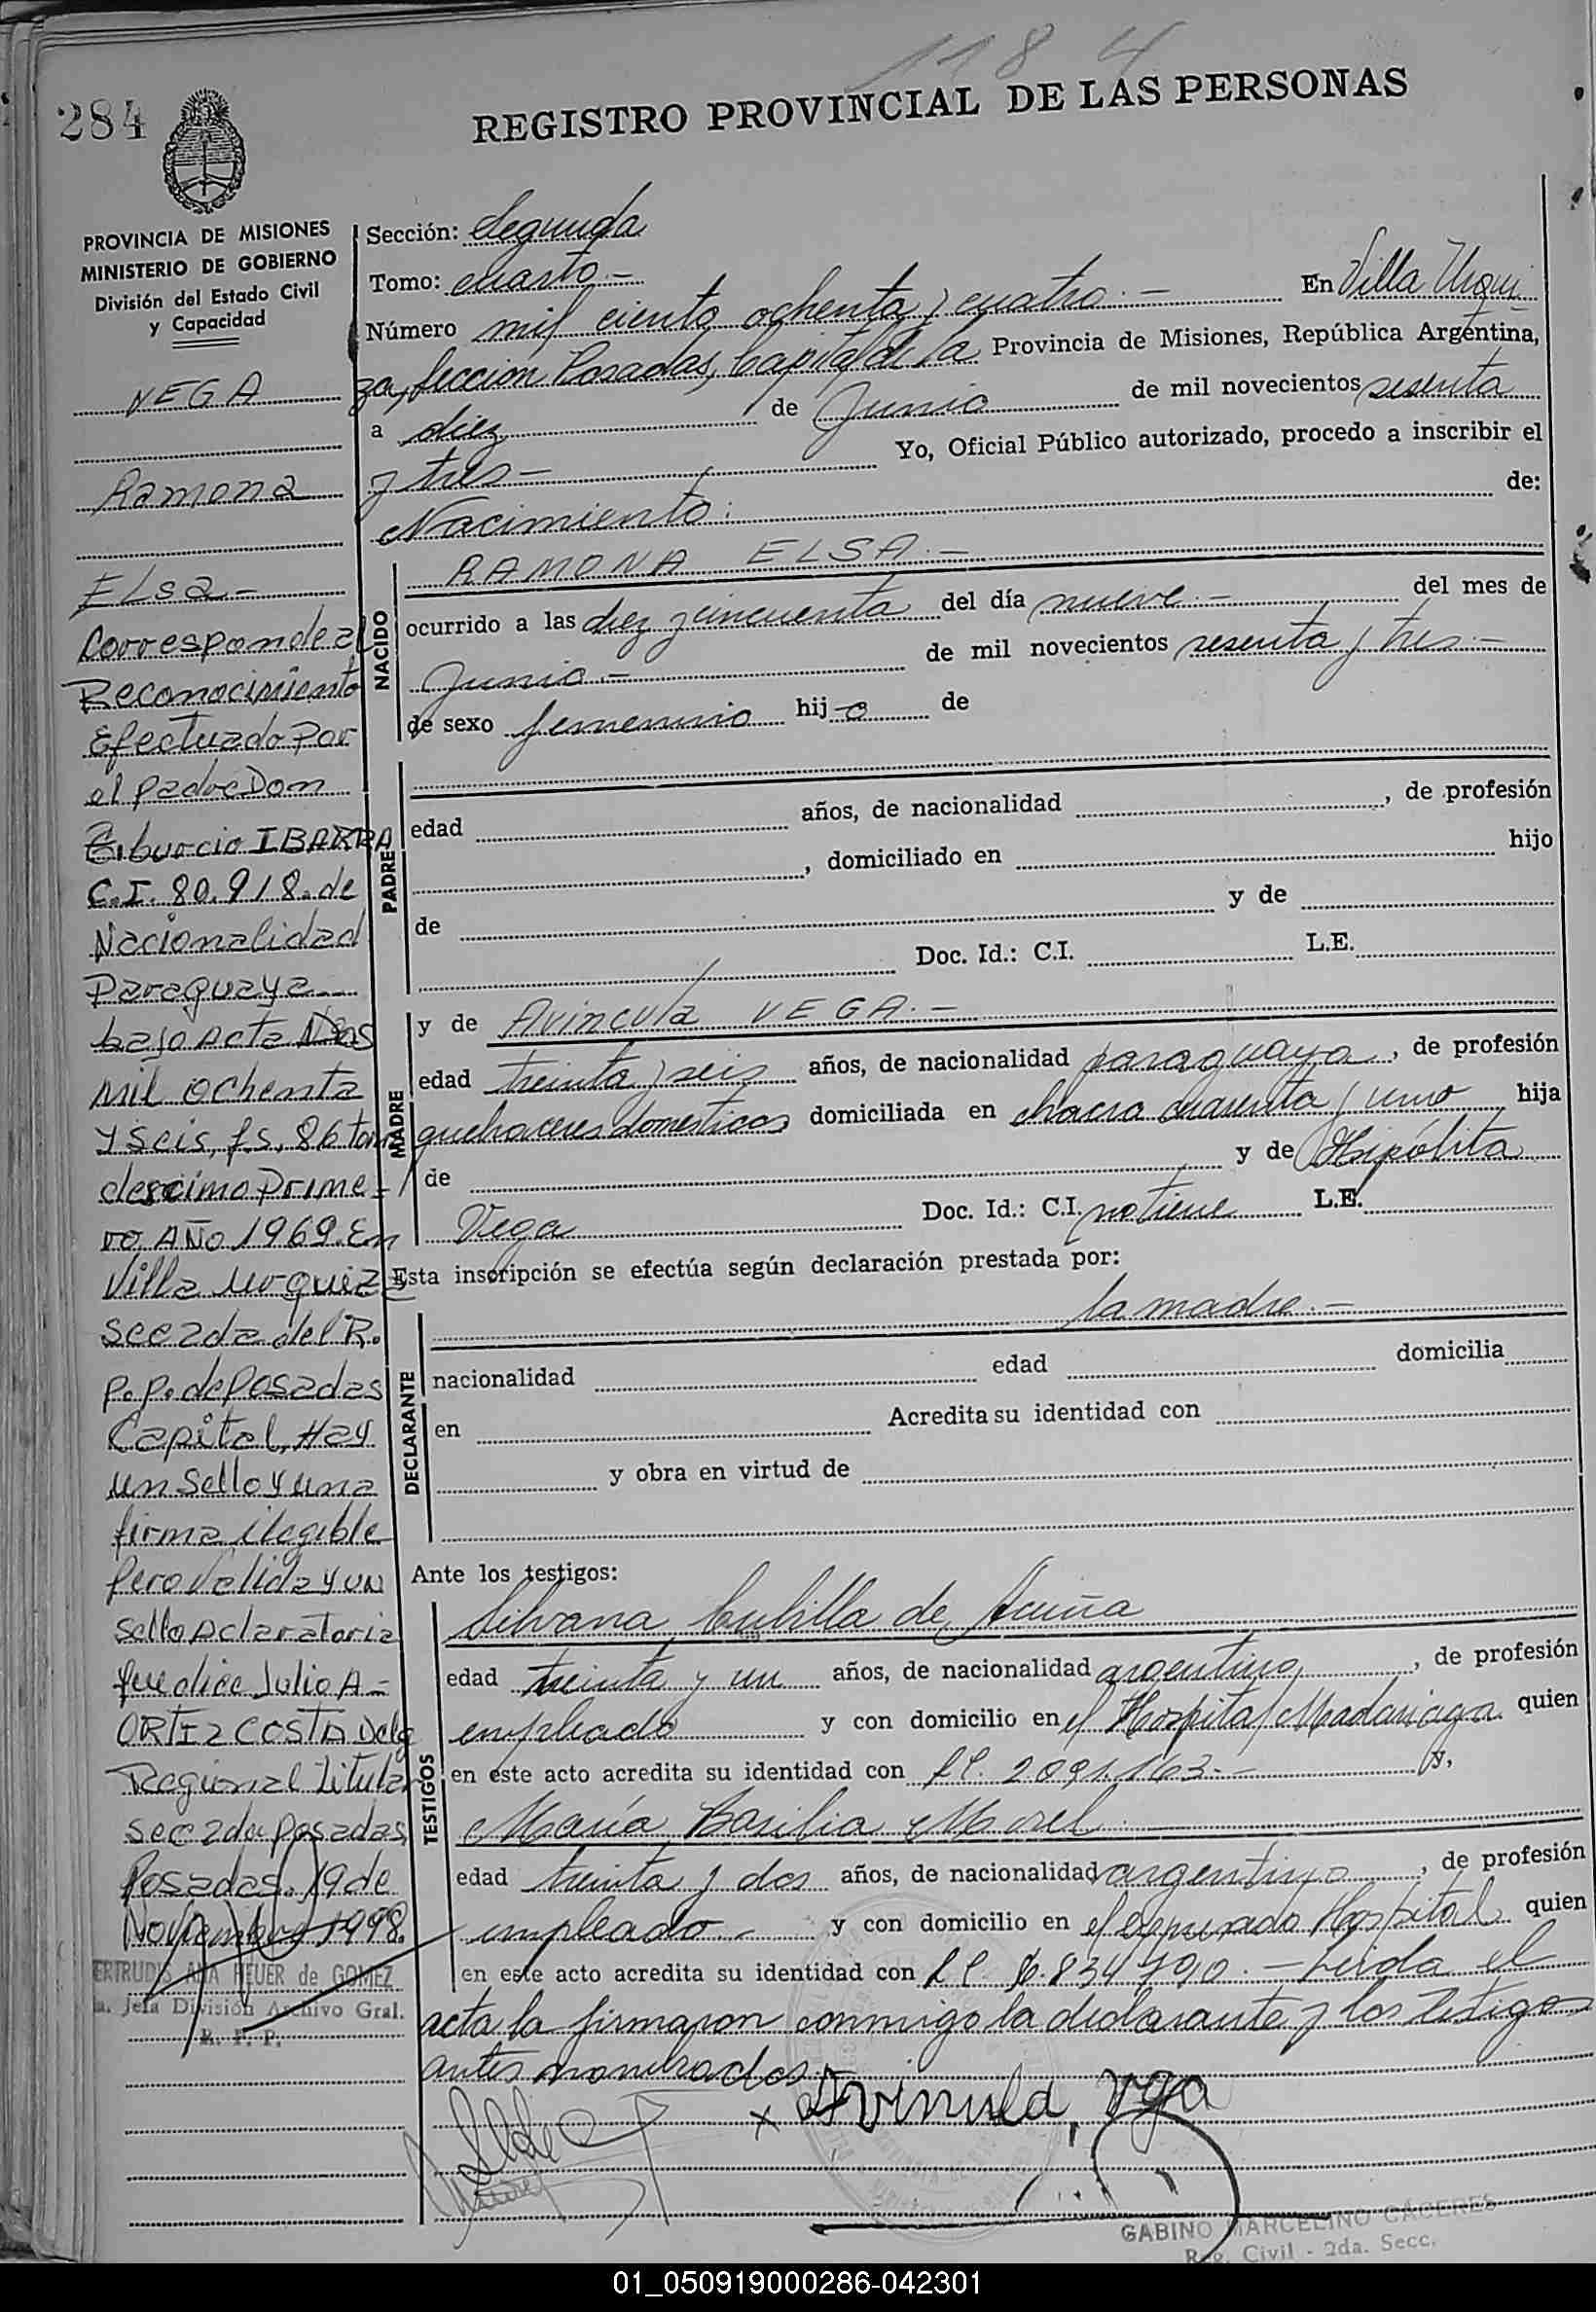 1184
284
REGISTRO PROVINCIAL DE LAS PERSONAS
PROVINCIA DE MISIONES
MINISTERIO DE GOBIERNO
División del Estado Civil
y Capacidad
VEGA
Ramona
Elsa.-
Corresponde al
Reconocimiento
Efectuado Por
el padre Don
Tiburcio IBARRA
C.I. 80.918. de
Nacionalidad
Paraguaya
bajo acta Nº dos
mil ochenta
y seis, fs. 86 tomo
decimo prime-
ro, Año 1969. En
Villa Urquiza
Sec 2da del R.
P. P. de Posadas
Capital, Hay
un Sello y una
firma ilegible
pero valida y un
sello aclaratorio
que dice Julio A-
ORTIZ COSTA Delg
Regional titular
sec 2da posadas
Posadas. 19 de
Noviembre 1998.
ERTRUDIS ANA HEUER de GOMEZ
a. Jefa División Archivo Gral.
R. P. P.
Sección: Segunda
Tomo: cuarto.-
Número mil ciento ochenta y cuatro.- En Villa Urqui
za, sección Posadas, Capital de la Provincia de Misiones, República Argentina,
a diez de Junio de mil novecientos sesenta
y tres- Yo, Oficial Público autorizado, procedo a inscribir el
Nacimiento: de:
NACIDO
RAMONA ELSA.-
ocurrido a las diez y cincuenta del día nueve.- del mes de
Junio.- de mil novecientos sesenta y tres.-
de sexo femenino hij o de
PADRE
edad años, de nacionalidad , de profesión
, domiciliado en hijo
de y de
Doc. Id.: C.I. L.E.
MADRE
y de Avincula VEGA.-
edad treinta y seis años, de nacionalidad paraguaya, de profesión
quehaceres domesticos domiciliada en chacra cuarenta y uno hija
de y de Hipólita
Vega Doc. Id.: C.I. no tiene L.E.
Esta inscripción se efectúa según declaración prestada por:
la madre.-
DECLARANTE
nacionalidad edad domicilia
en Acredita su identidad con
y obra en virtud de
Ante los testigos:
TESTIGOS
Silvana Cubilla de Acuña
edad treinta y un años, de nacionalidad argentina, de profesión
empleado y con domicilio en el Hospital Madariaga quien
en este acto acredita su identidad con 2.091.163.- y,
María Basilia Morel
edad treinta y dos años, de nacionalidad argentino, de profesión
empleado.- y con domicilio en el expresado Hospital quien
en este acto acredita su identidad con 6.834790.- Leida el
acta la firmaron conmigo la declarante y los testigos
antes nombrados.
x Avinula, vga
GABINO MARCELINO CACERES
Reg. Civil - 2da. Secc.
01_050919000286-042301